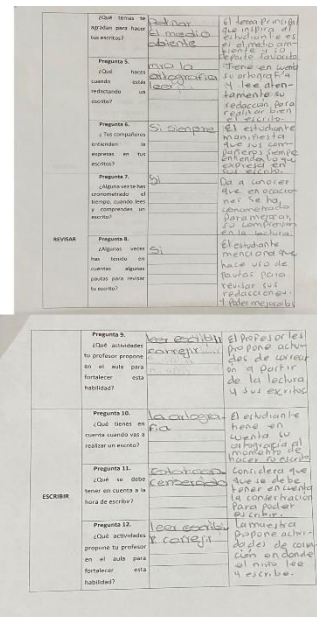 ¿Qué temas te
agradan para hacer
tus escritos?
El medio
abiente
el tema principal
que inspira al
estudiante es
el medio am-
biente y su
deporte favorito
Pregunta 5.
¿Qué haces
cuando estás
redactando un
escrito?
miro la
ortografia
leo
Tiene en cuenta
su ortografía
y lee aten-
tamente su
redacción para
realizar bien
el escrito.
Pregunta 6.
¿Tus compañeros
entienden lo que
expresas en tus
escritos?
Si siempre
El estudiante
manifiesta
que sus com-
pañeros siempre
entienden lo que
expresa en
sus escrito.
REVISAR
Pregunta 7.
¿Alguna vez te has
cronometrado el
tiempo, cuando lees
y comprendes un
escrito?
Si
Da a conocer
que en ocacio
nes se ha
cronometrado
para mejorar
su comprension
en la lectura.
Pregunta 8.
¿Algunas veces
has tenido en
cuentas algunas
pautas para revisar
tu escrito?
Si
El estudiante
menciona que
hace uso de
pautas para
revisar sus
redacciones
y poder mejorarlas
Pregunta 9.
¿Qué actividades
tu profesor propone
en el aula para
fortalecer esta
habilidad?
leer escribir
correjir
El profesor les
propone activi
des de correcci
on a partir
de la lectura
y sus escritos
ESCRIBIR
Pregunta 10.
¿Qué tienes en
cuenta cuando vas a
realizar un escrito?
la ortogra
fia
El estudiante
tiene en
cuenta su
ortografia al
momento de
hacer su escrito
Pregunta 11.
¿Qué se debe
tener en cuenta a la
hora de escribir?
Considera que
que se debe
tener en cuenta
la concentración
para poder
escribir.
Pregunta 12.
¿Qué actividades
propone tu profesor
en el aula para
fortalecer esta
habilidad?
leer escribir
y correjir
La maestra
propone activi-
dades de corre
ción en donde
el niño lee
y escribe.